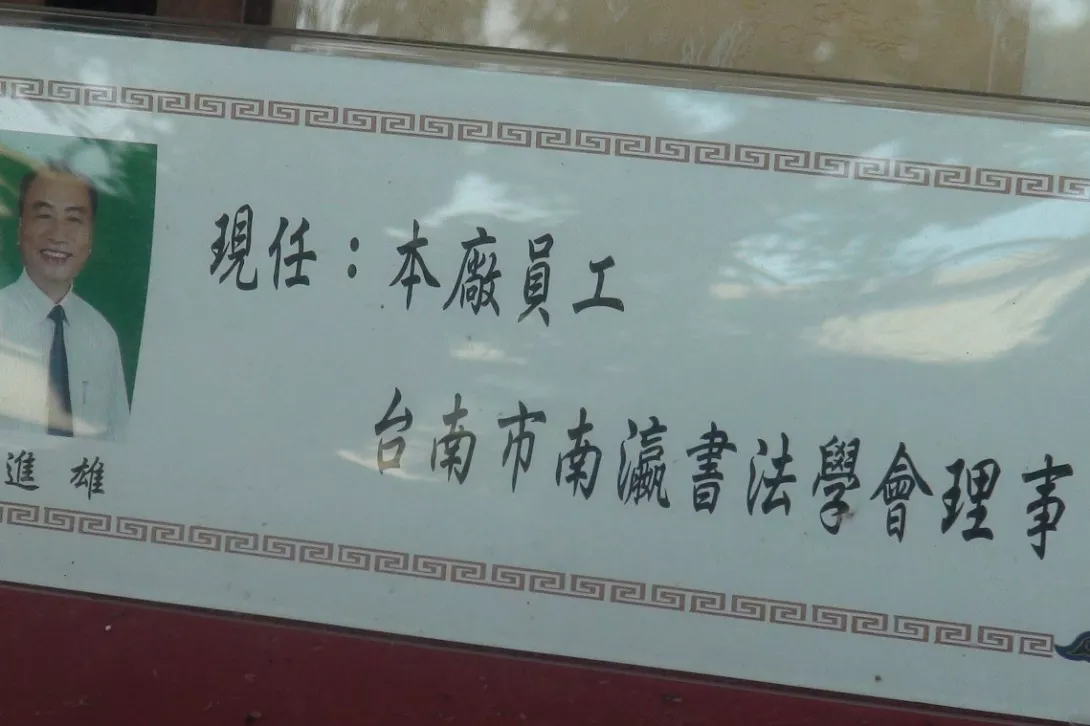 現任：本廠員工
台南市南瀛書法學會理事
進雄